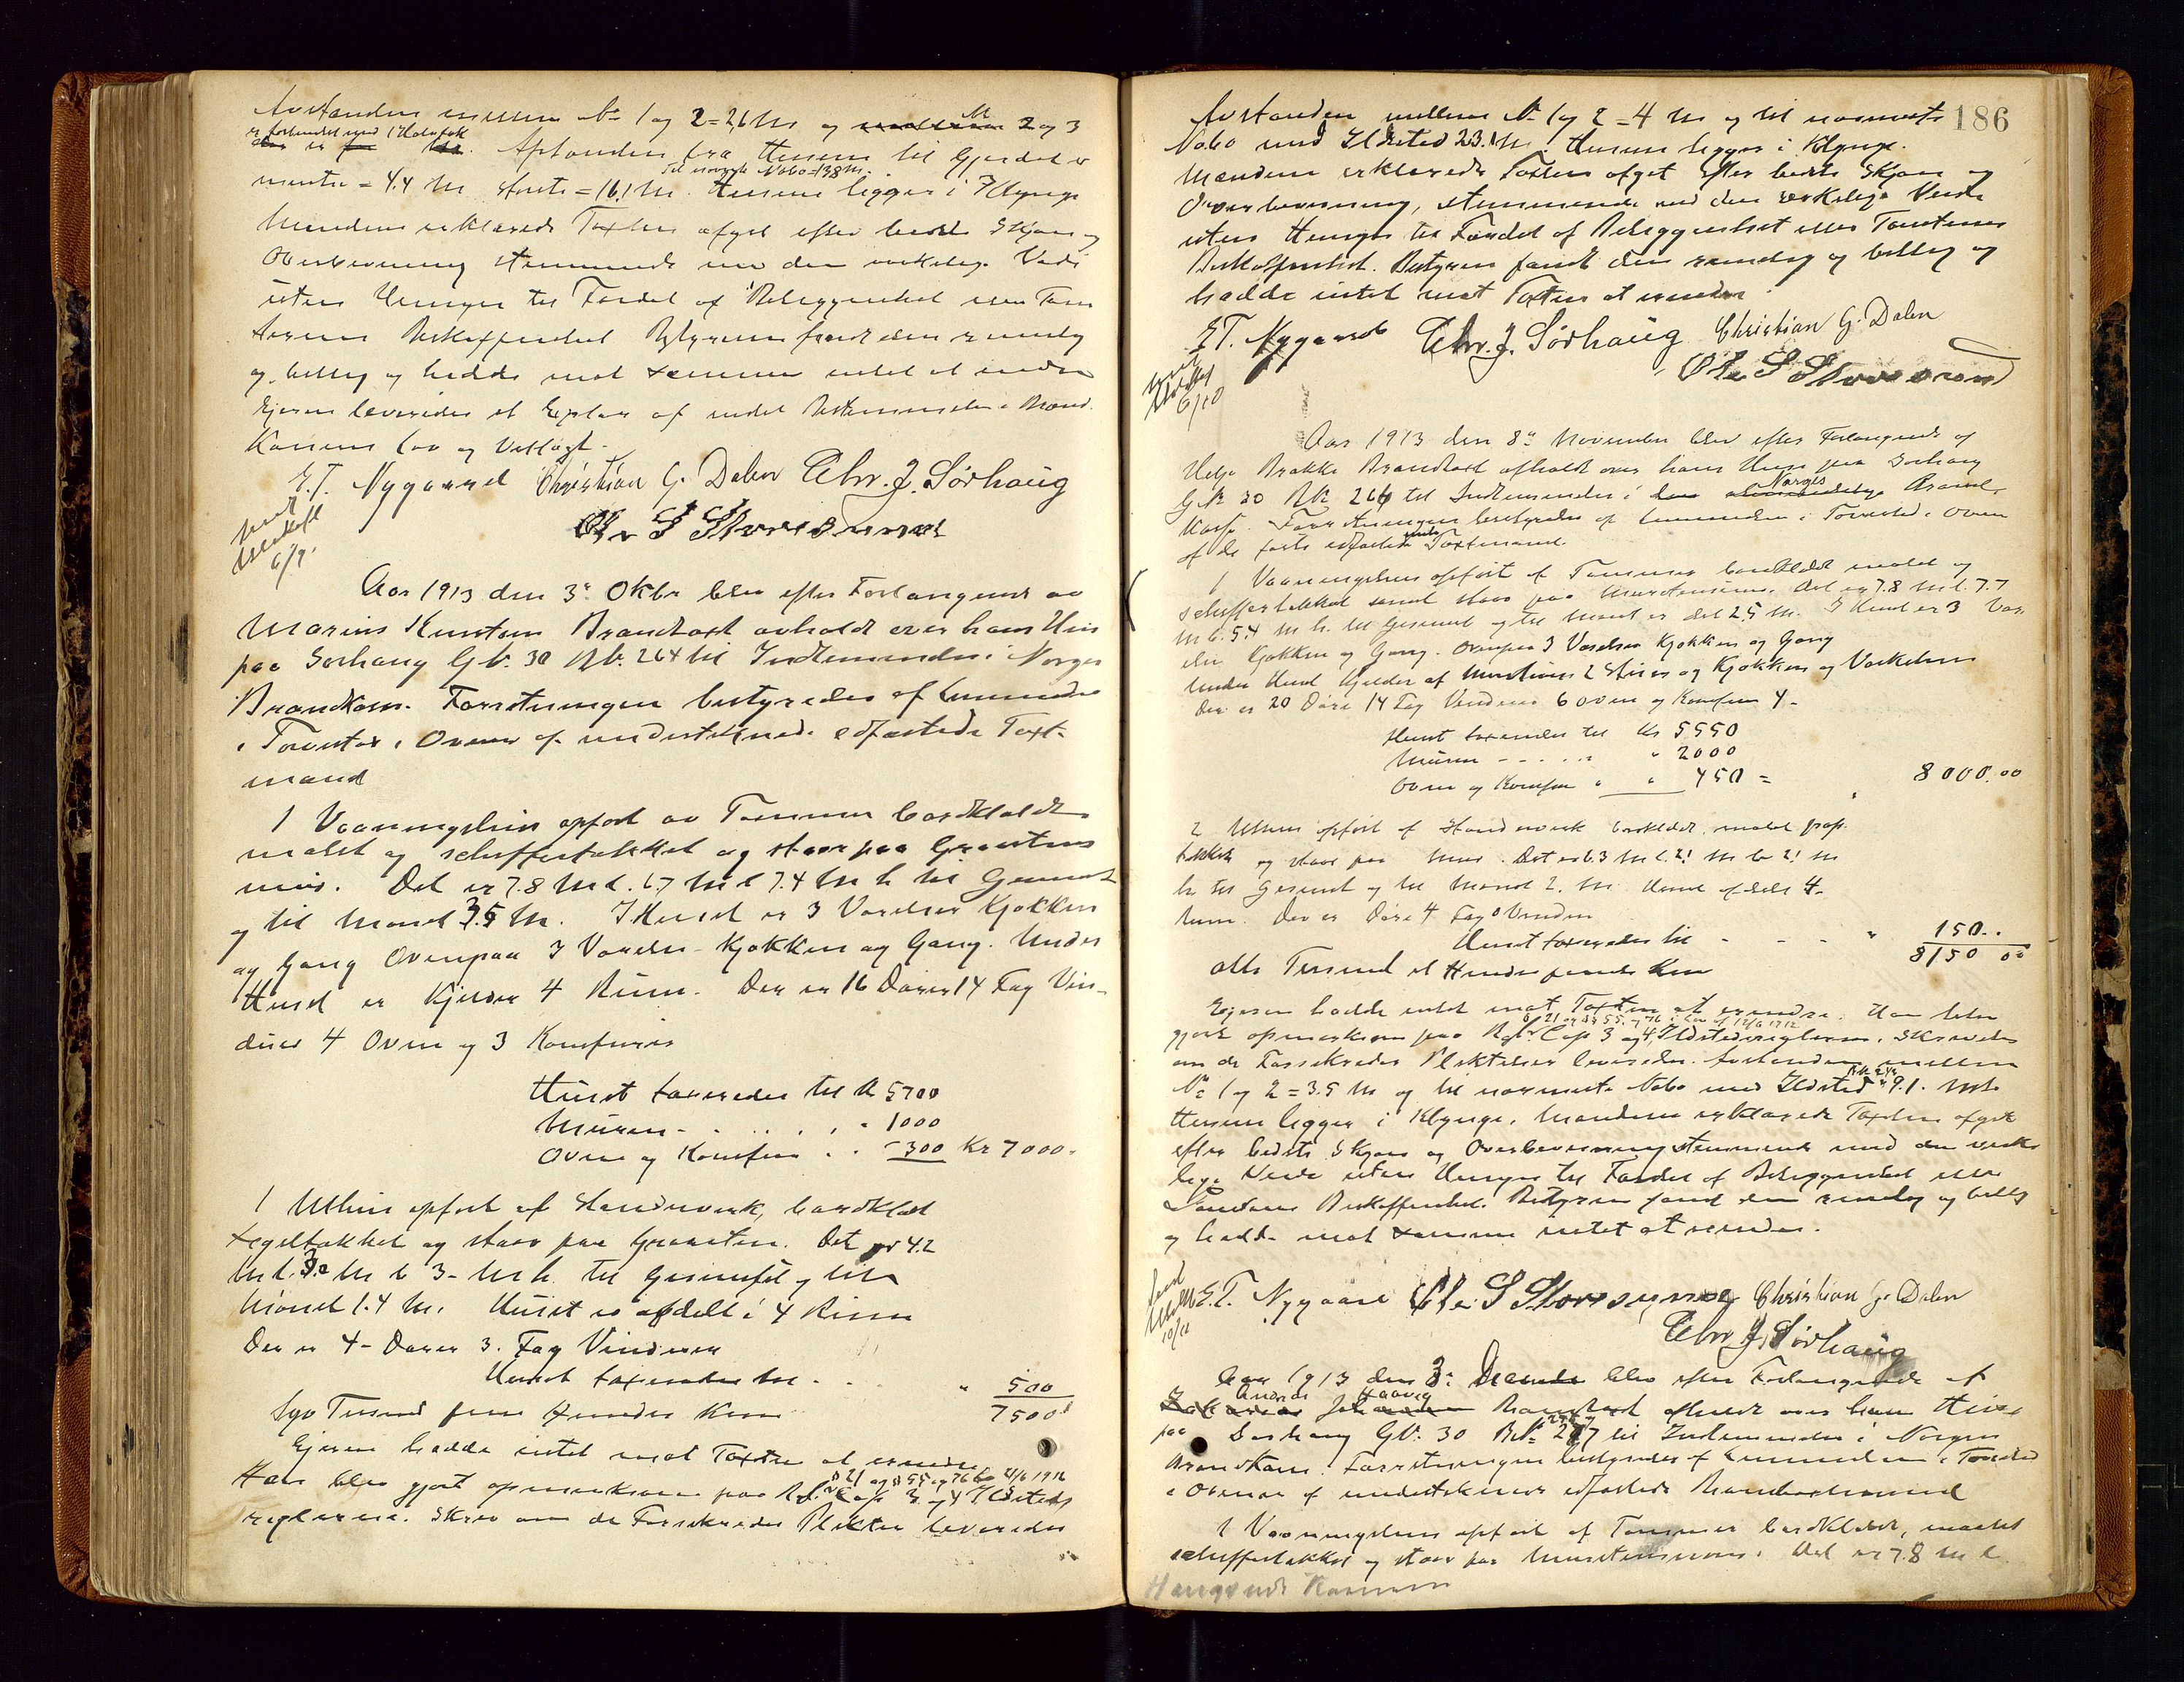 Avstanden mellem No 1 og 2 = 2,6 M og 2 og 3
er forbundet med 1 Halvtak
er Afstanden fra Husene til Gjerdet er
Til nærmeste Nabo = 13,8 M.
mindste = 4.4 M største = 16,1 M. Husene ligger i Klynge
Mændene erklærede Taxten afgit efter bedste Skjøn og
Overbevisning stemmende med den virkelige Værdi
uten Hensyn til Fordel af Beliggenhed eller Tom
ternes Beskaffenhed Bestyreren fandt den rimelig
og billig og hadde mot samme intet at erindre
Ejeren leveredes et Explar af endel Bestemmelser i Brand
Kassens Lov og Vedtægt
E.T. Nygaard Christian G. Dalen Chr. J. Sørhaug
Ole S Storesund
send
Udskrift
6/9.
Aar 1913 den 3e Oktbr blev efter Forlangende av
Marius Knutsen Brandtaxt avholdt over hans Hus
paa Sørhaug G.Nr. 30 B.Nr. 264 til Indlemmelse i Norges
Brandkasse. Forretningen bestyredes af Lensmanden
i Torvestad i Overvær af undertegnede edfæstede Taxt-
mænd
1 Vaaningshus opført av Tømmer bordklædt
malet og skiffertækket og staar paa Graastens
mur. Det er 7.8 M l. 6.7 M b 7.4 M h til Gesimset
og til Mønet 3.5 M. I Huset er 3 Værelser Kjøkken
og Gang Ovenpaa 3 Værelser Kjøkken og Gang. Under
Huset er Kjelder 4 Rum. Der er 16 Dører 14 Fag Vin-
duer 4 Ovne og 3 Komfurer
Huset taxeredes til Kr 5700
Muren - . . . . " 1000
Ovne og Komfur . . - 300 Kr 7000.
1 Uthus opført af Standerverk, bordklædt
tegltækket og staar paa Graasten. Det er 4.2
M l. 3.0 M b 3- M h. til Gesimset og til
Mønet 1.4 M. Huset er afdelt i 4 Rum
Der er 4 - Dører 3. Fag Vinduer
Huset taxeredes til - . . " 500
Syv Tusend fem Hundre Kroner 7500
Ejeren hadde intet mot Taxten at erindre
§ 21 og § 55 og 76 Lov 1912
Han blev gjort opmerksom paa Rgl. Cap 3 og 4 Ildsteds
reglerne. Skrev om de Forsikredes Plikter leveredes
186
Avstanden mellem No 1 og 2 = 4 M og til nærmeste
Nabo med Ildsted 23.1 M. Husene ligger i Klynge.
Mændene erklærede Taxten afgit efter bedste Skjøn og
Overbevisning, stemmende med den virkelige Værdi
uten Hensyn til Fordel af Beliggenhet eller Tomternes
Beskaffenhed. Bestyreren fandt den rimelig og billig og
hadde intet mot Taxten at erindre
E.T. Nygaard Chr. J. Sørhaug Christian G. Dalen
Ole S Storesund
send
Udskrift
6/10
Aar 1913 den 8e November blev efter Forlangende af
Helge Brekke Brandtaxt afholdt over hans Huse paa Sørhaug
G.Nr 30 B.Nr 266 til Indlemmelse i Norges Brand-
kasse. Forretningen bestyredes af Lensmanden i Torvestad i Overvær
af de faste edfæstede Taxtmænd.
1 Vaaningshus opført af Tømmer bordklædt malet og
skiffertækket samt staar paa Murstensmur. Det er 7.8 M l. 7.7
M b. 5.4 M h. til Gesimset og til Mønet er det 2.5 M. I Huset er 3 Væ
relser Kjøkken og Gang. Ovenpaa 3 Værelser Kjøkken og Gang
Under Huset Kjelder af Murstens 2 Stuer og Kjøkken og Vaskehus
Der er 20 Døre 14 Fag Vinduer 6 Ovne og Komfurer 4.
Huset taxeredes til Kr 5550
Muren - - . . . " 2000
Ovne og Komfur " " 450 = 8000.00
2 Uthus opført af Standerverk bordklædt, malet pap
tækket og staar paa Mur. Det er 6.3 M l. 2.1 M b 2.1 M
h. til Gesims og til Mønet 2. M Huset afdelt 4
Rum. Der er Døre 4 Fag Vinduer
Huset taxeredes til - . - . " 150..
Otte Tusend et Hundre femti Kroner 8150 00
Ejeren hadde intet mot Taxten at erindre. Han blev
§ 21 og § 55 og 76 i Lov af 12/6 1912
gjort opmerksom paa Rgl. Cap 3 og 4, Ildstedsreglerne. Skrevet
om de Forsikredes Plikter leveredes. Avstanden mellem
No 1 og 2 = 3.5 M og til nærmeste Nabo med Ildsted 9.1. M.
Husene ligger i Klynge. Mændene erklærede Taxten afgit
efter bedste Skjøn og Overbevisning stemmende med den virke
lige Værdi uten Hensyn til Fordel af Beliggenhed eller
Tomtens Beskaffenhed. Bestyreren fandt den rimelig og billig
og hadde mot samme intet at erindre.
send
Udskrift
10/11
E.T. Nygaard Ole S Storesund Christian G. Dalen
Chr. J. Sørhaug
Aar 1913 den 3. Decembr blev efter Forlangende af
Brandtaxt afholdt over hans Huse
paa Sørhaug G.Nr. 30 B.Nr. 277 til Indlemmelse i Norges
Brandkasse. Forretningen bestyredes af Lensmanden i Torvestad
i Overvær af undertegnede edfæstede Brandtaxtmænd
1 Vaaningshus opført af Tømmer bordklædt, malet
skiffertækket og staar paa Murstensmur. Det er 7.8 M l.